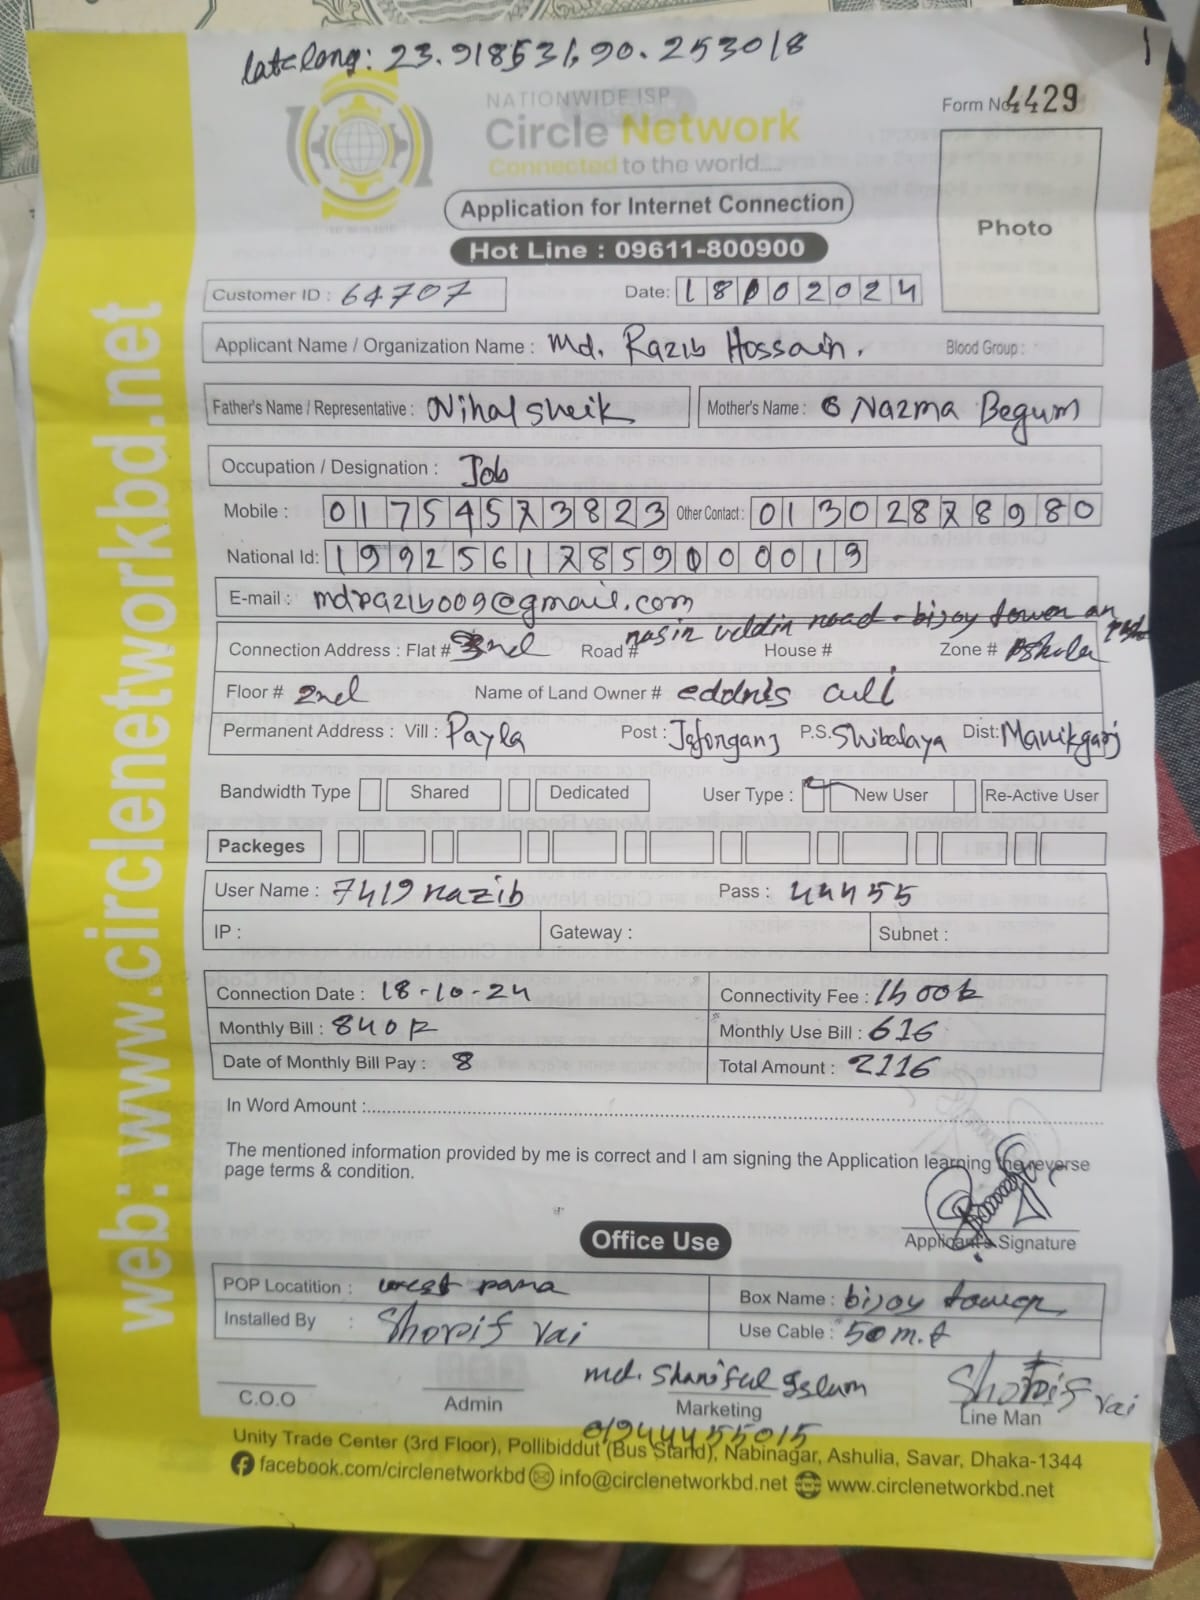 lat&long: 23.918531,90.253018
NATIONWIDE ISP
Circle Network
Connected to the world.....
Form No 4429
Photo
Application for Internet Connection
Hot Line : 09611-800900
Customer ID : 64707 Date: 18102024
Applicant Name / Organization Name : Md. Razib Hossain. Blood Group :
Father's Name / Representative : Nihal sheik Mother's Name : Nazma Begum
Occupation / Designation : Job
Mobile : 01754573823 Other Contact : 01302878980
National Id: 19925617859000019
E-mail : mdrazib009@gmail.com
nasir uddin road - bijoy tower
Connection Address : Flat # 2nd Road # House # Zone #
Floor # 2nd Name of Land Owner # eddris
Permanent Address : Vill : Payla Post : Jaforganj P.S. Shibalaya Dist: Manikganj
Bandwidth Type Shared Dedicated User Type : New User Re-Active User
Packeges
User Name : 7419razib Pass : 44455
IP : Gateway : Subnet :
Connection Date : 18-10-24 Connectivity Fee : 1500tk
Monthly Bill : 840 Monthly Use Bill : 616
Date of Monthly Bill Pay : 8 Total Amount : 2116
In Word Amount :
The mentioned information provided by me is correct and I am signing the Application learning the reverse
page terms & condition.
Applicant's Signature
Office Use
POP Locatition : west para Box Name : bijoy tower
Installed By : Shorif vai Use Cable : 50 m.t
md. Shariful Islam Shorif vai
C.O.O Admin Marketing Line Man
01944455015
Unity Trade Center (3rd Floor), Pollibiddut (Bus Stand), Nabinagar, Ashulia, Savar, Dhaka-1344
facebook.com/circlenetworkbd info@circlenetworkbd.net www.circlenetworkbd.net
web: www.circlenetworkbd.net